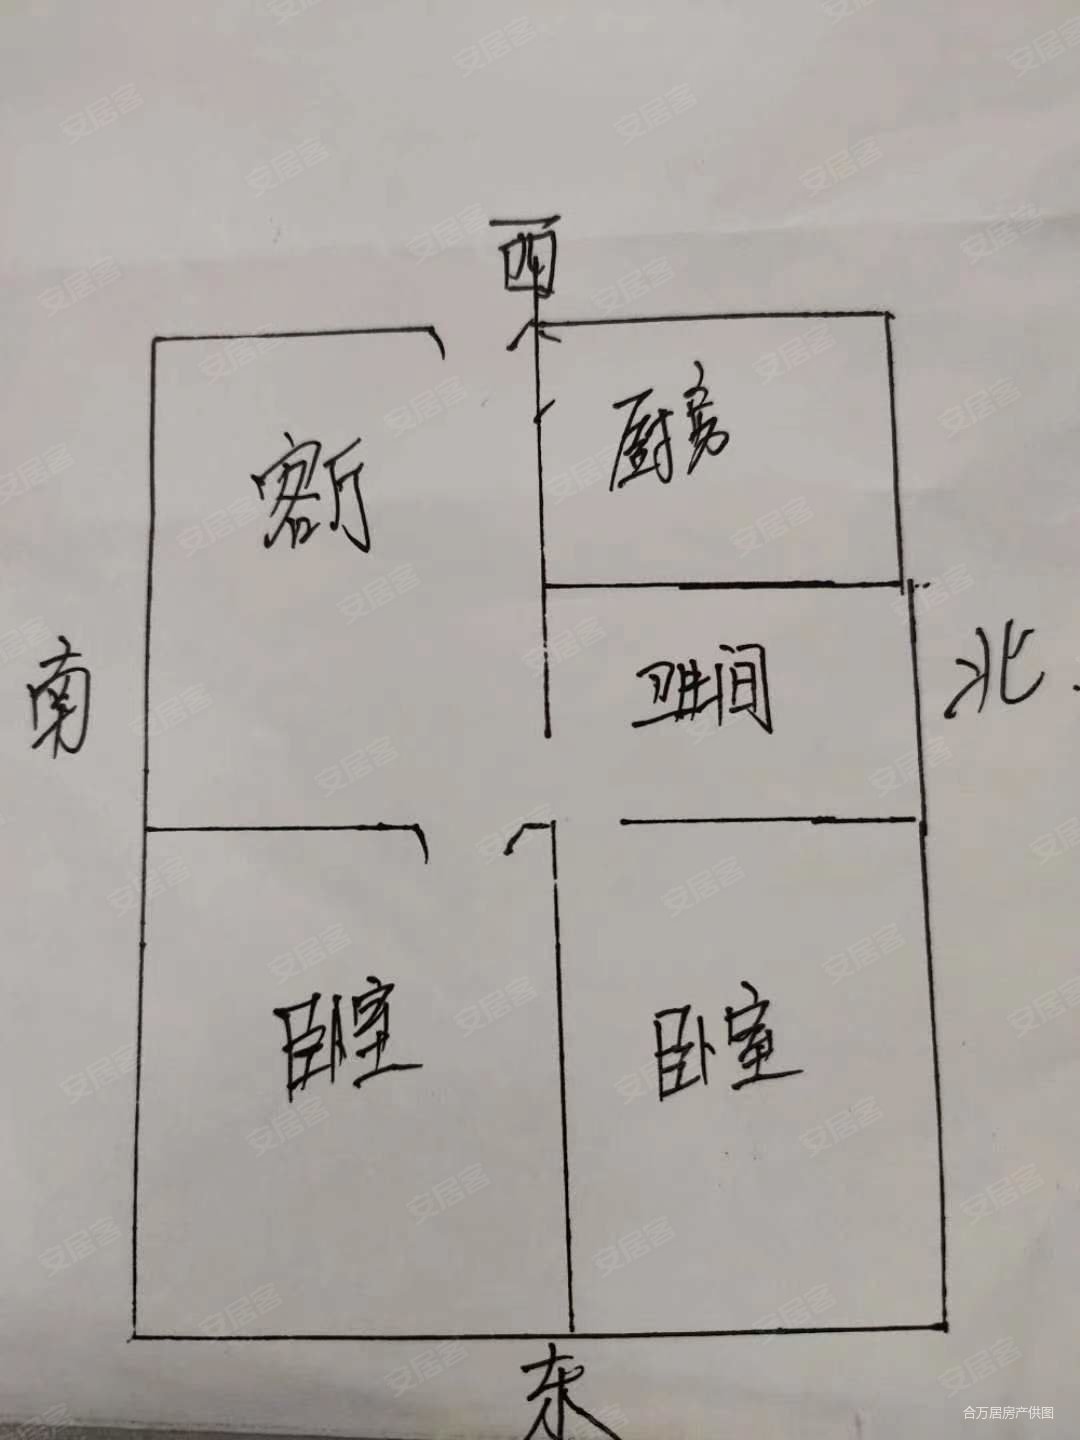 西
客厅
厨房
南
卫生间
北
卧室
卧室
东
合万居房产供图
安居客